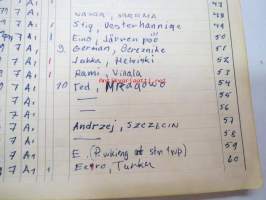 7 A1 48
7 A1 1 Stig, Vesterhanninge 49
7 A1 1 Eino, Järvenpää 50
7 A1 9. German, Berezniki 51
7 A1 Jukka, Helsinki 52
7 A1 1 Rami, Viiala 53
7 A1 10 Ted, 54
7 A1 55
7 A1 56
7 A1 Andrzej, SZCZECIN 57
58
7 A1 E. 59
7 A1 Eero, Turku 60